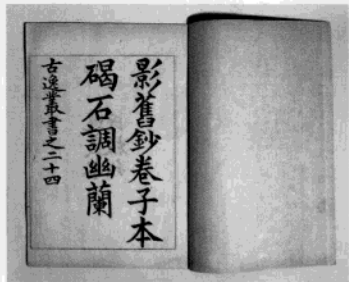 影舊鈔卷子本
碣石調幽蘭
古逸叢書之二十四